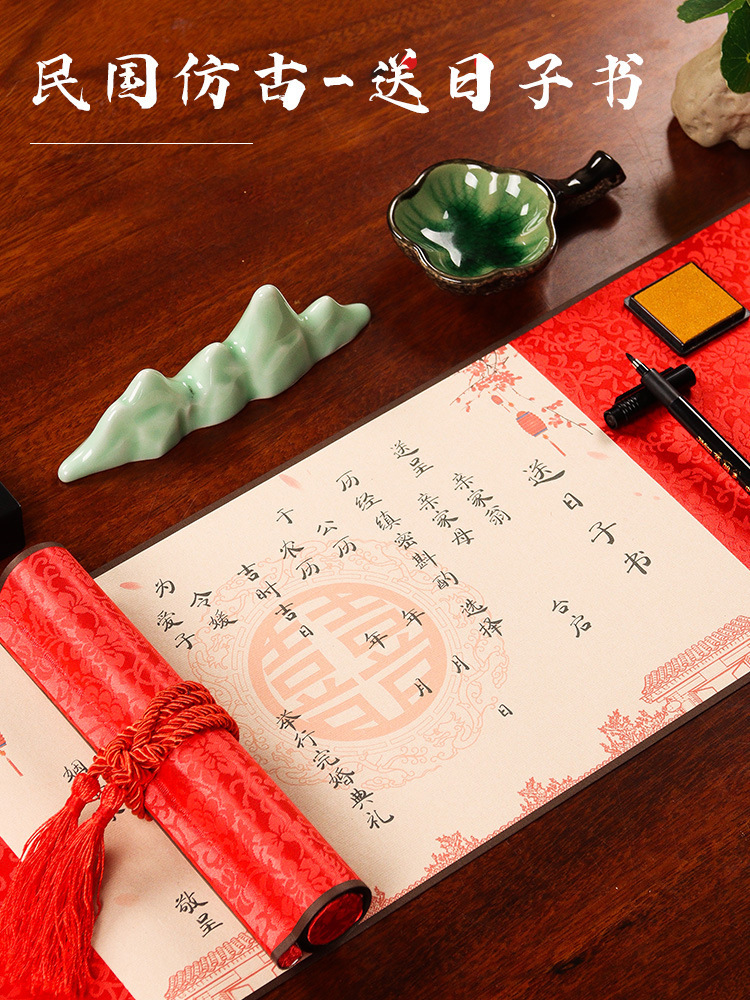 民国仿古-送日子书
送日子书
台启
亲家翁
送呈
亲家母
历经缜密斟酌 选择
公历 年 月 日
于
农历 年 月
吉时吉日
举行完婚典礼
令媛
为
爱子
姻
敬呈